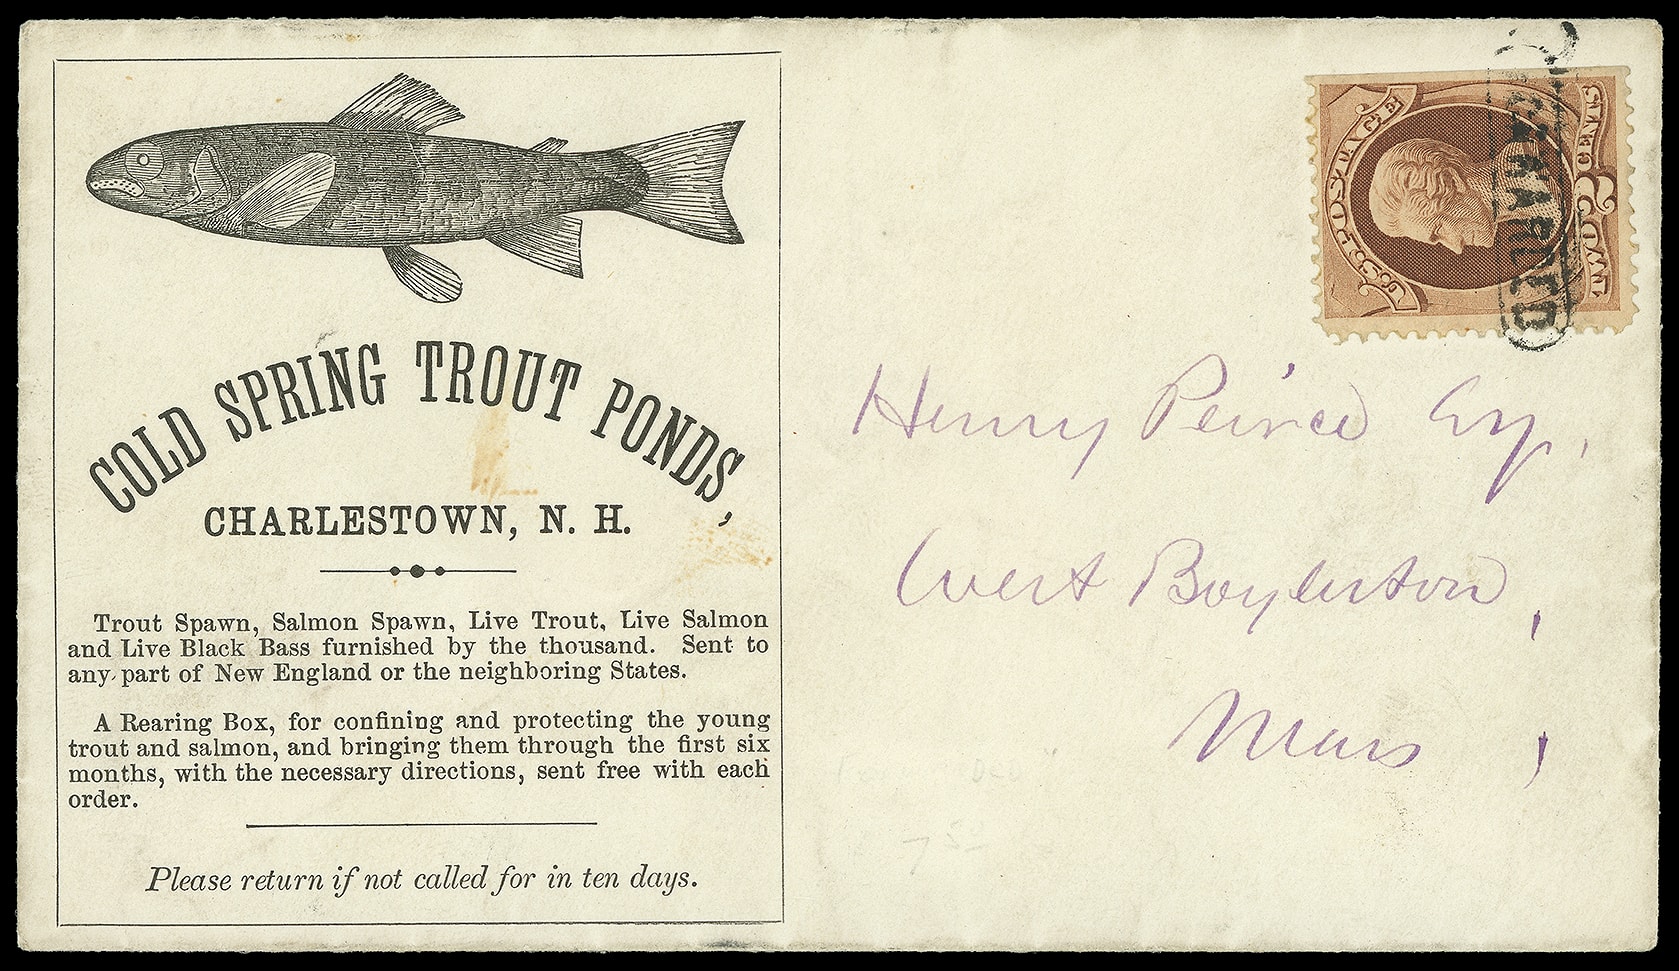 COLD SPRING TROUT PONDS,
CHARLESTOWN, N. H.
Trout Spawn, Salmon Spawn, Live Trout, Live Salmon
and Live Black Bass furnished by the thousand. Sent to
any part of New England or the neighboring States.
A Rearing Box, for confining and protecting the young
trout and salmon, and bringing them through the first six
months, with the necessary directions, sent free with each
order.
Please return if not called for in ten days.
U.S. POSTAGE
TWO 2 CENTS
FORWARDED
Henry Peirce Esq,
West Boylston,
Mass,